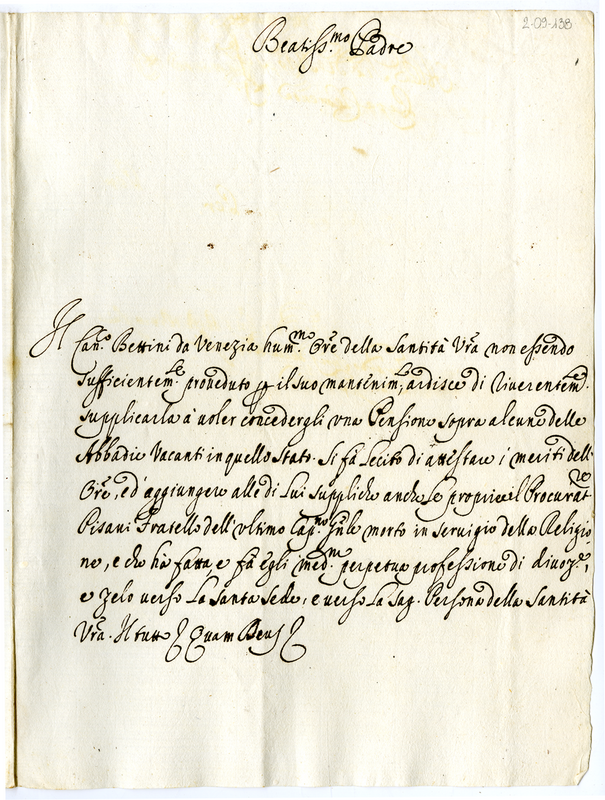 2-09-138
Beatiss.mo Padre
Il Can.co Bettini da Venezia hum.mo Ore della Santità Vra non essendo
sufficientem.te proveduto p il suo mantenim.to, ardisce di riverentem.te
supplicarla à voler concedergli una Pensione sopra alcune delle
Abbadie Vacanti in quello Stato. Si fà lecito di attestare i meriti dell'
Ore, ed' aggiungere alle di Lui suppliche anche le proprie il Procurat.re
Pisani Fratello dell'ultimo Cap.no Gnle morto in servigio della Religio
ne, e che hà fatta, e fà egli med.mo perpetua professione di divoz.e,
e zelo verso La Santa Sede, e verso La Sag. Persona della Santità
Vra. Il tutto Quam Deus